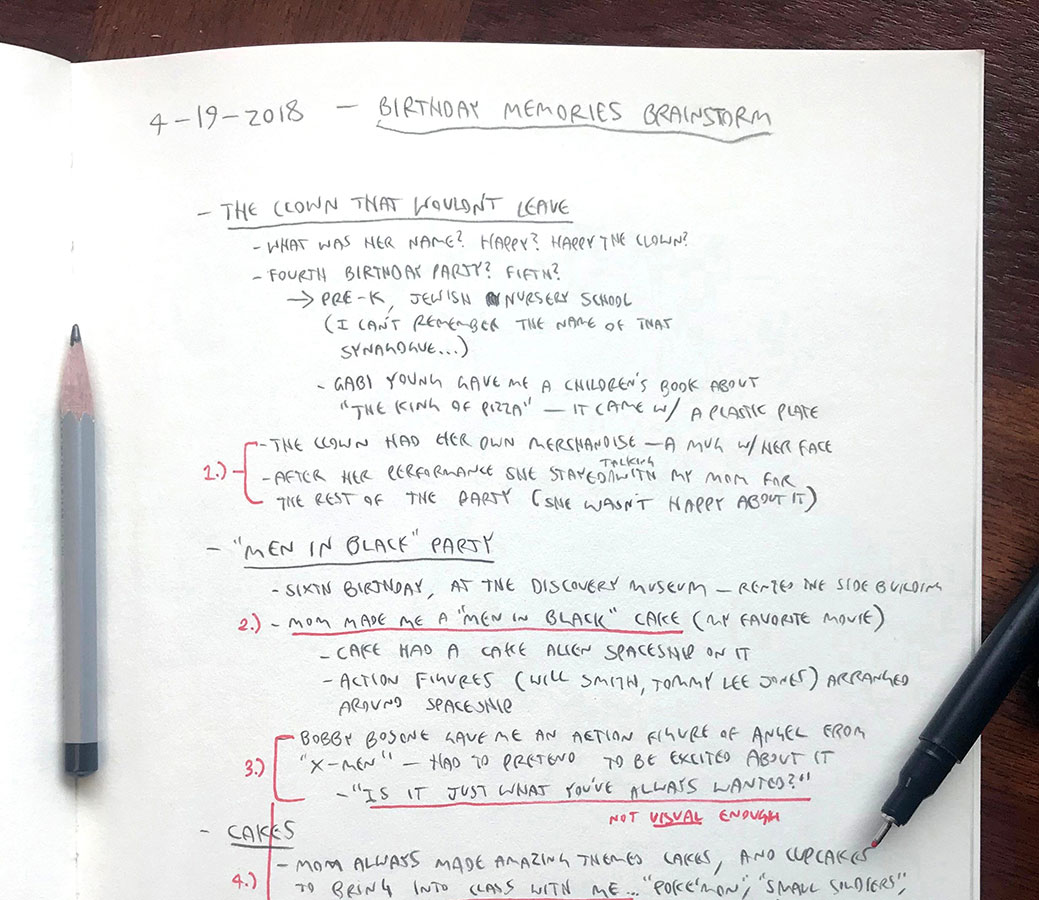 4-19-2018 — BIRTHDAY MEMORIES BRAINSTORM
- THE CLOWN THAT WOULDN'T LEAVE
- WHAT WAS HER NAME? HAPPY? HAPPY THE CLOWN?
- FOURTH BIRTHDAY PARTY? FIFTH?
→ PRE-K, JEWISH NURSERY SCHOOL
(I CAN'T REMEMBER THE NAME OF THAT
SYNAGOGUE...)
- GABI YOUNG GAVE ME A CHILDREN'S BOOK ABOUT
"THE KING OF PIZZA" — IT CAME W/ A PLASTIC PLATE
- THE CLOWN HAD HER OWN MERCHANDISE — A MUG W/ HER FACE
1.) - AFTER HER PERFORMANCE SHE STAYED TALKING WITH MY MOM FOR
THE REST OF THE PARTY (SHE WASN'T HAPPY ABOUT IT)
- "MEN IN BLACK" PARTY
- SIXTH BIRTHDAY, AT THE DISCOVERY MUSEUM — RENTED THE SIDE BUILDING
2.) - MOM MADE ME A "MEN IN BLACK" CAKE (MY FAVORITE MOVIE)
- CAKE HAD A CAKE ALIEN SPACESHIP ON IT
- ACTION FIGURES (WILL SMITH, TOMMY LEE JONES) ARRANGED
AROUND SPACESHIP
BOBBY BOSONE GAVE ME AN ACTION FIGURE OF ANGEL FROM
3.) "X-MEN" — HAD TO PRETEND TO BE EXCITED ABOUT IT
- "IS IT JUST WHAT YOU'VE ALWAYS WANTED?"
NOT VISUAL ENOUGH
- CAKES
- MOM ALWAYS MADE AMAZING THEMED CAKES, AND CUPCAKES
4.) TO BRING INTO CLASS WITH ME... "POKÉMON", "SMALL SOLDIERS",